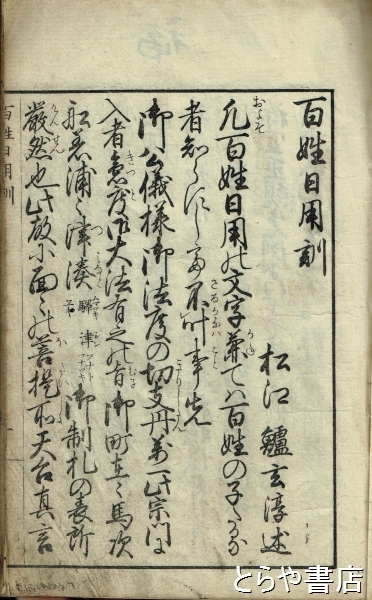 百姓日用訓
松江 鱸玄淳述
凡百姓日用の文字兼ては百姓の子たる
者知らずしては不叶事先
御公儀様御法度の切支丹並此宗門に
入者急度御大法有之の旨御町在々馬次
舩着浦々津湊 御制札の表所
厳然也此故小面々の菩提所天台真言
百姓日用訓
とらや書店